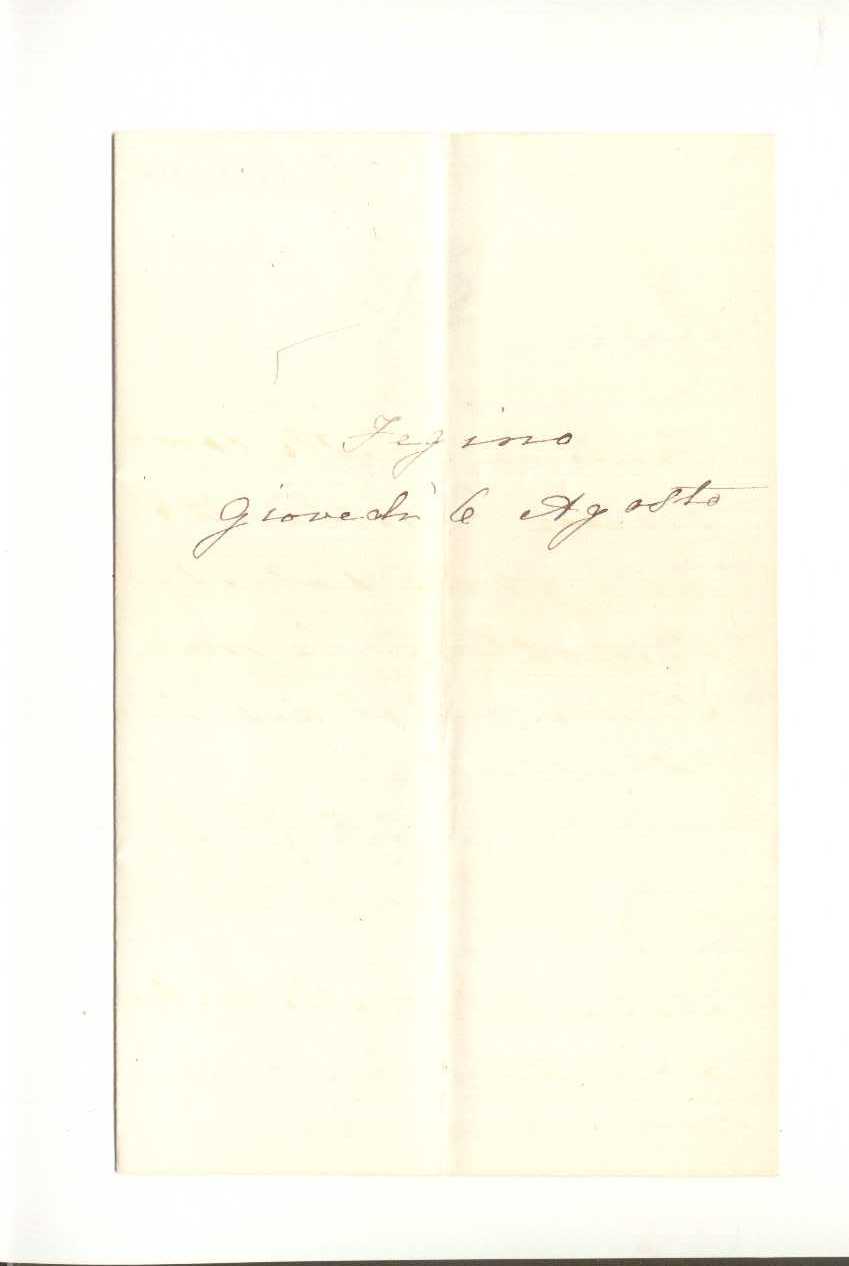 Fegino
Giovedì 6 Agosto